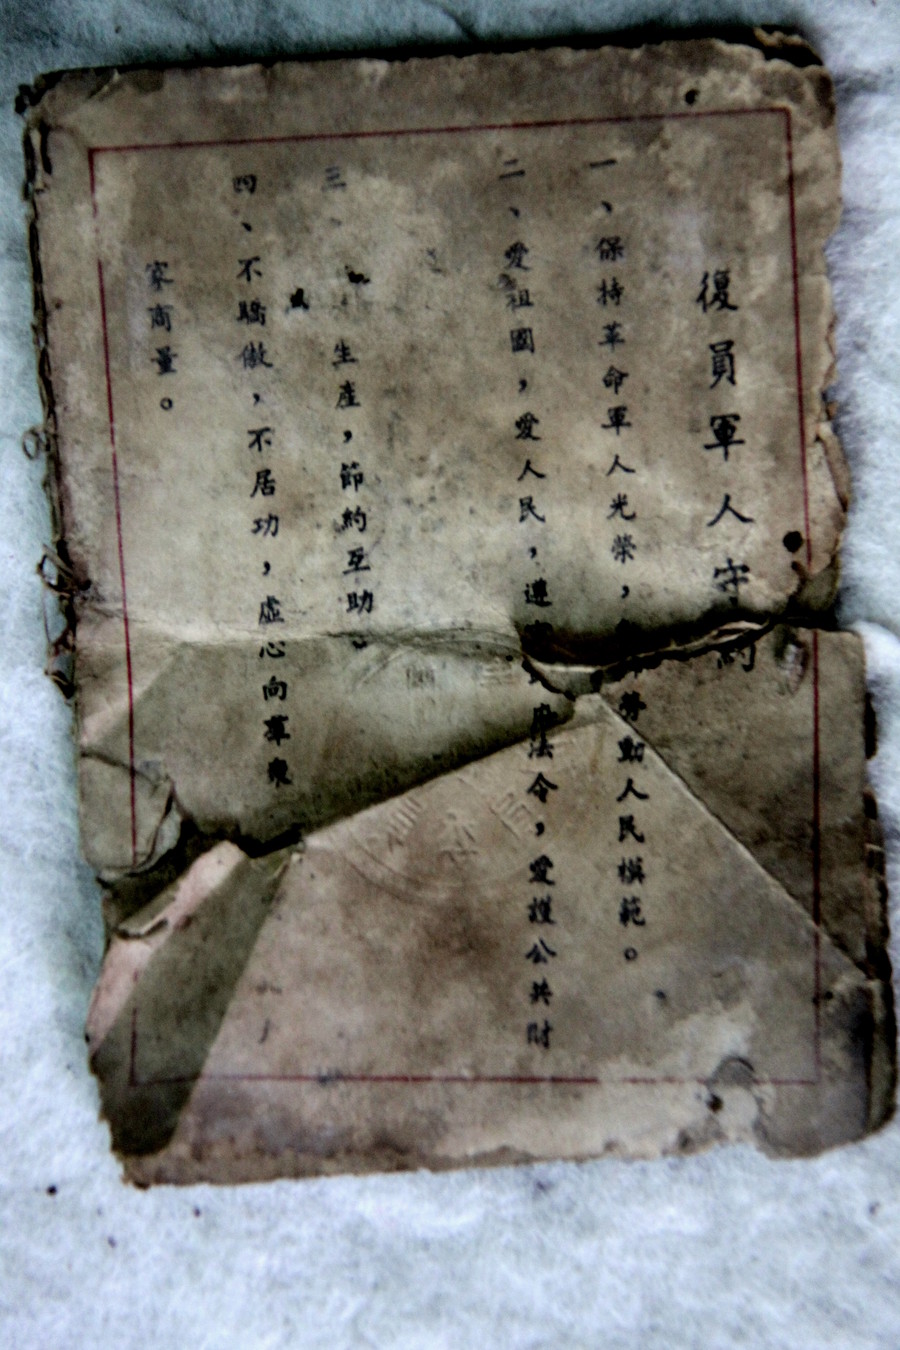 復員軍人守約
一、保持革命軍人光榮，勞動人民模範。
二、愛祖國，愛人民，遵府法令，愛護公共財
三、生產，節約互助。
四、不驕傲，不居功，虛心向羣衆
商量。